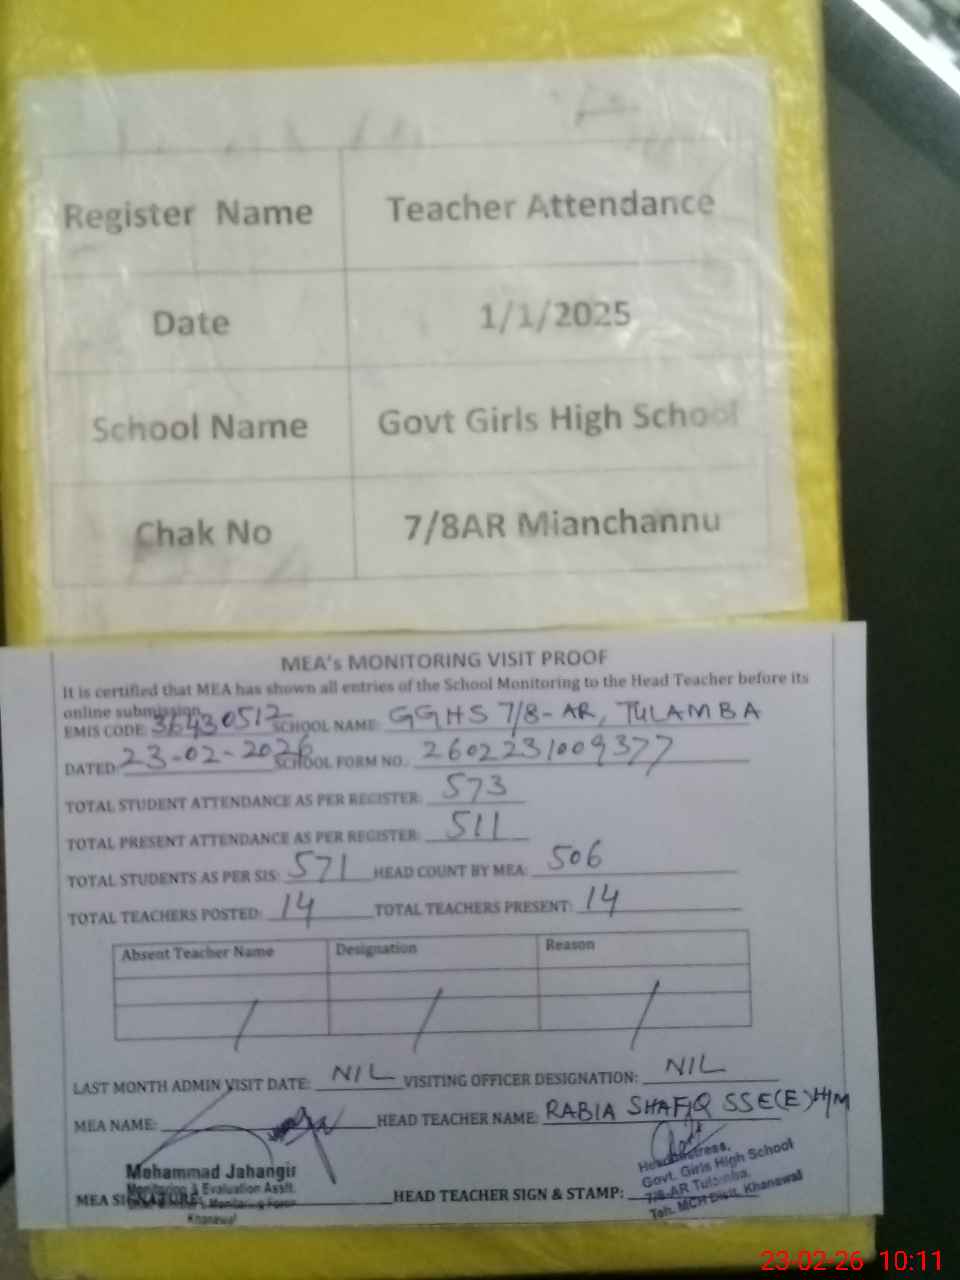 Register Name Teacher Attendance
Date 1/1/2025
School Name Govt Girls High School
Chak No 7/8AR Mianchannu
MEA's MONITORING VISIT PROOF
It is certified that MEA has shown all entries of the School Monitoring to the Head Teacher before its
online submission.
EMIS CODE: 36430512 SCHOOL NAME: GGHS 7/8-AR, TULAMBA
DATED: 23-02-2026 SCHOOL FORM NO.: 2602231009377
TOTAL STUDENT ATTENDANCE AS PER REGISTER: 573
TOTAL PRESENT ATTENDANCE AS PER REGISTER: 511
TOTAL STUDENTS AS PER SIS: 571 HEAD COUNT BY MEA: 506
TOTAL TEACHERS POSTED: 14 TOTAL TEACHERS PRESENT: 14
Absent Teacher Name Designation Reason
LAST MONTH ADMIN VISIT DATE: NIL VISITING OFFICER DESIGNATION: NIL
MEA NAME: HEAD TEACHER NAME: RABIA SHAFIQ SSE(E) H/M
Mohammad Jahangir
Monitoring & Evaluation Asstt.
Monitoring Force
Khanewal
MEA SIGNATURE: HEAD TEACHER SIGN & STAMP:
Headmistress,
Govt. Girls High School
7/8-AR Tulamba,
Teh. MCH Distt. Khanewal
23-02-26 10:11